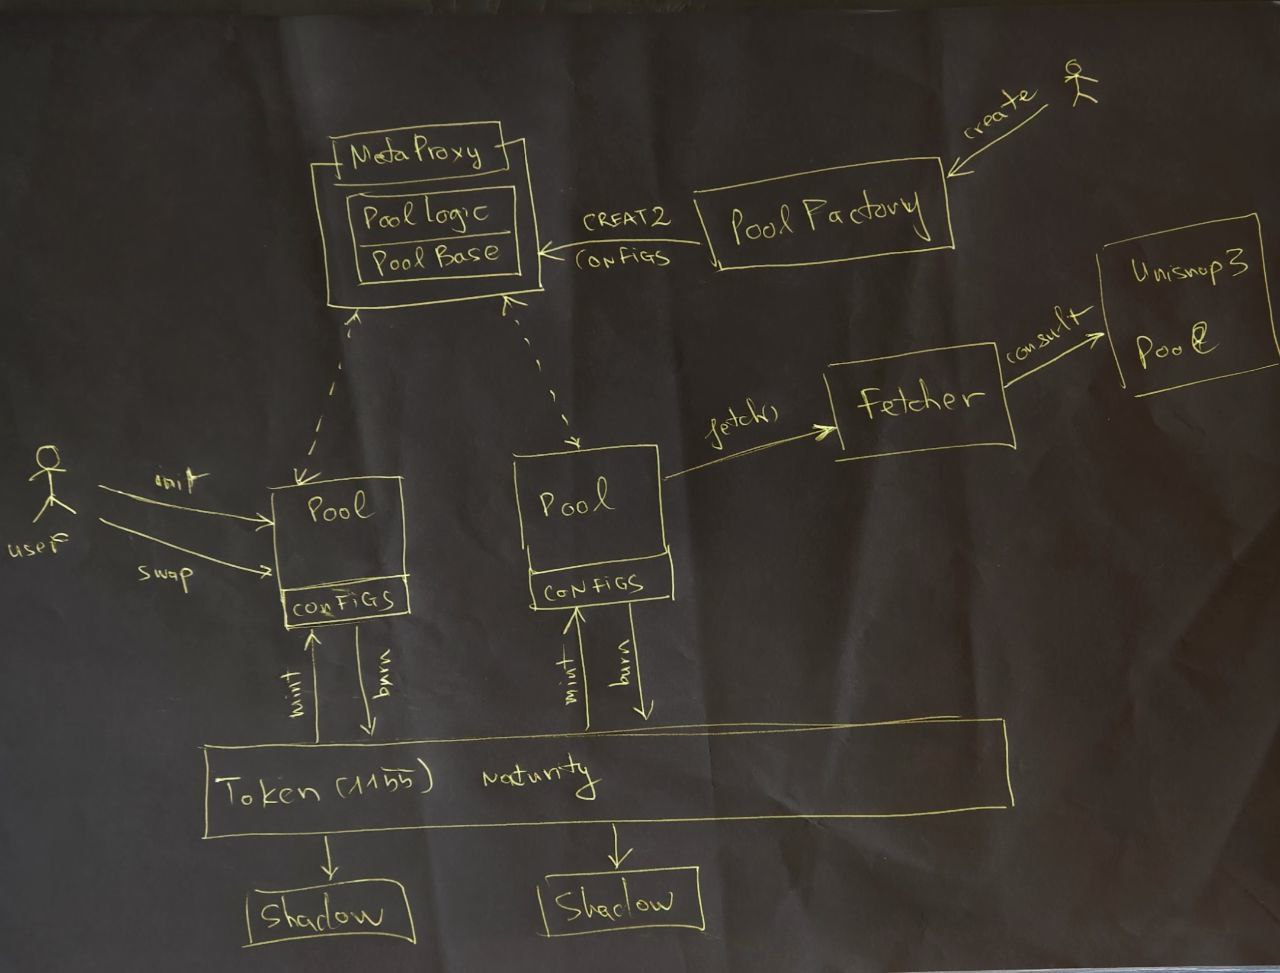 create
MetaProxy
Pool Logic
Pool Base
CREAT2
CONFIGS
Pool Factory
Uniswap3
Pool
consult
Fetcher
fetch()
user
init
swap
Pool
CONFIGS
Pool
CONFIGS
mint
burn
mint
burn
Token (1155) Maturity
Shadow
Shadow